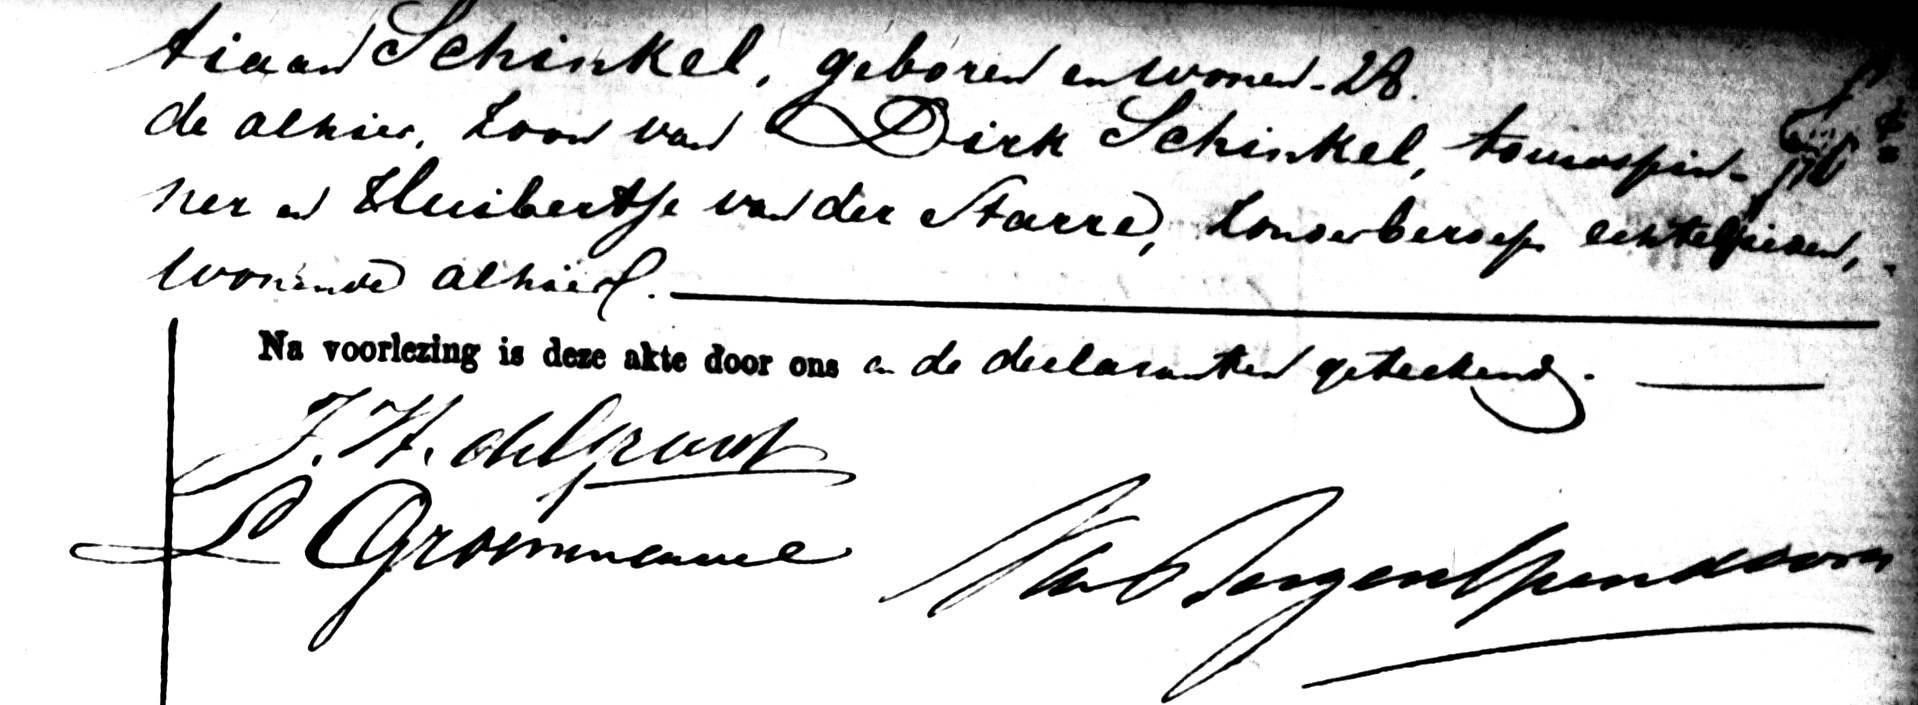 tiaan Schinkel, geboren en wonen-28.
de alhier, zoon van Dirk Schinkel, touwspin-
ner en Huibertje van der Starre, zonder beroep echtelieden,
wonende alhier.
Na voorlezing is deze akte door ons en de declaranten geteekend.
J. H. de Groot
L Groenneweve